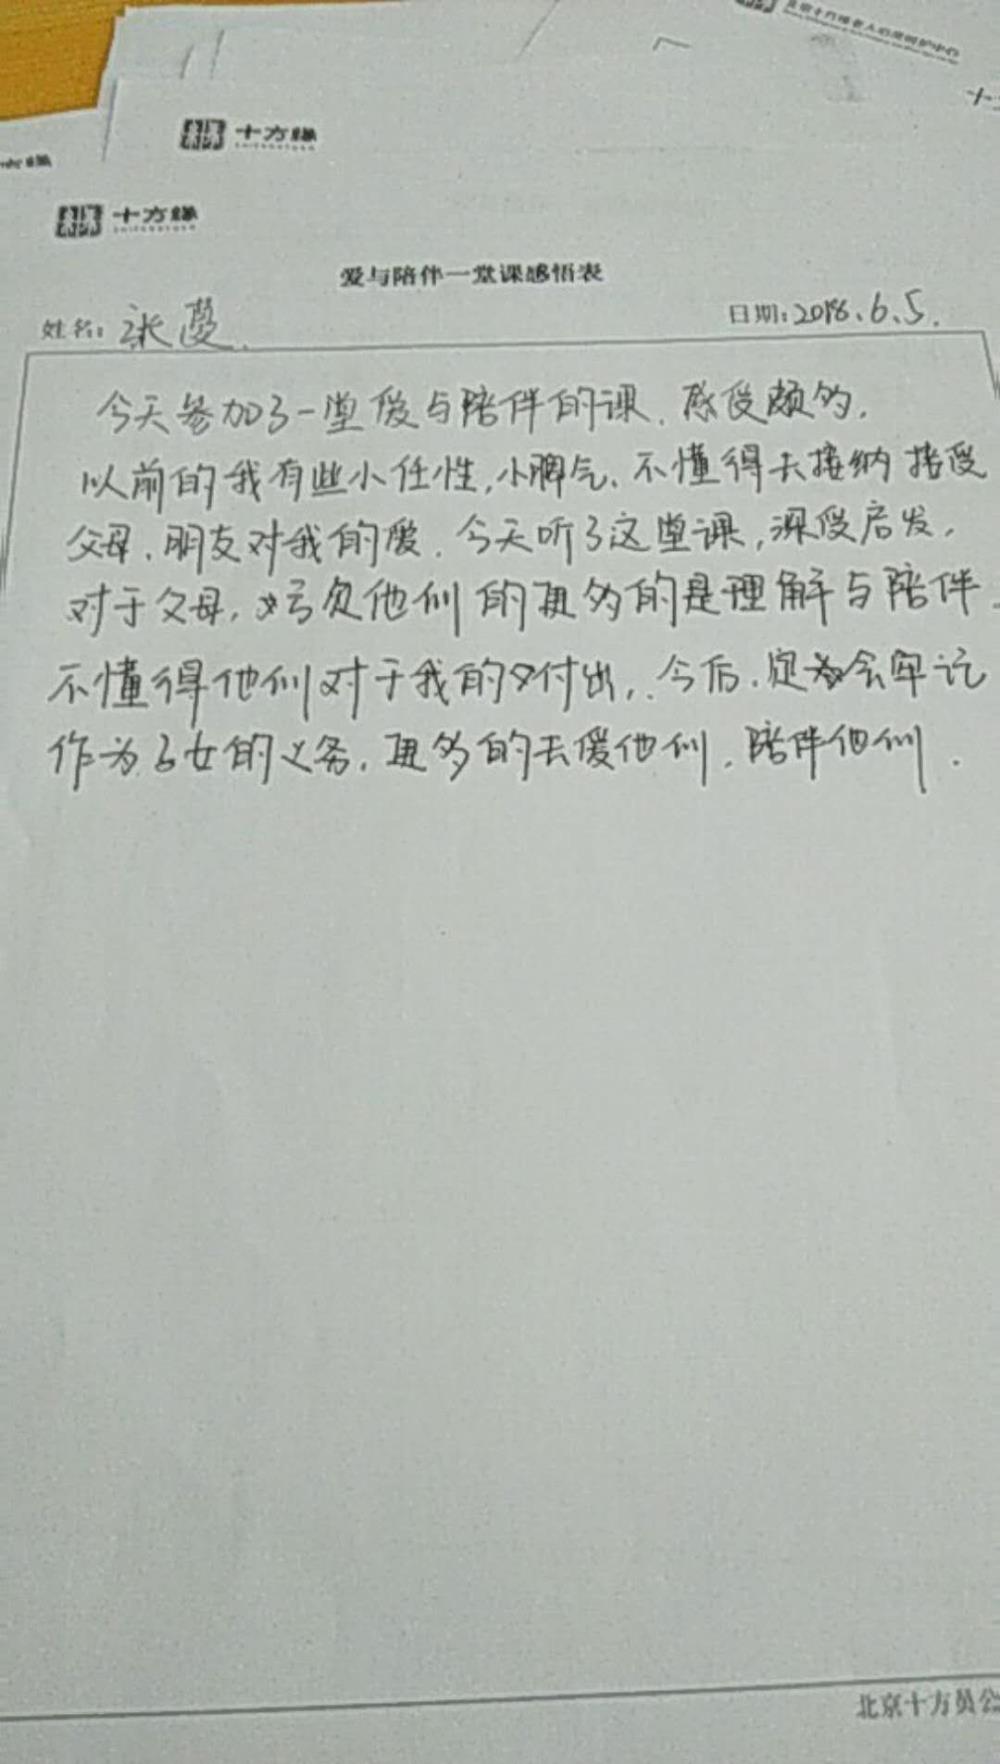 十方缘
十方缘
爱与陪伴一堂课感悟表
姓名: 张蔓.
日期:2018.6.5.
今天参加了一堂爱与陪伴的课.感受颇多.
以前的我有些小任性,小脾气、不懂得去接纳 接受
父母、朋友对我的爱.今天听了这堂课,深受启发.
对于父母,亏欠他们的更多的是理解与陪伴.
不懂得他们对于我的付出,.今后.定会牢记
作为子女的义务.更多的去爱他们.陪伴他们.
北京十方缘公